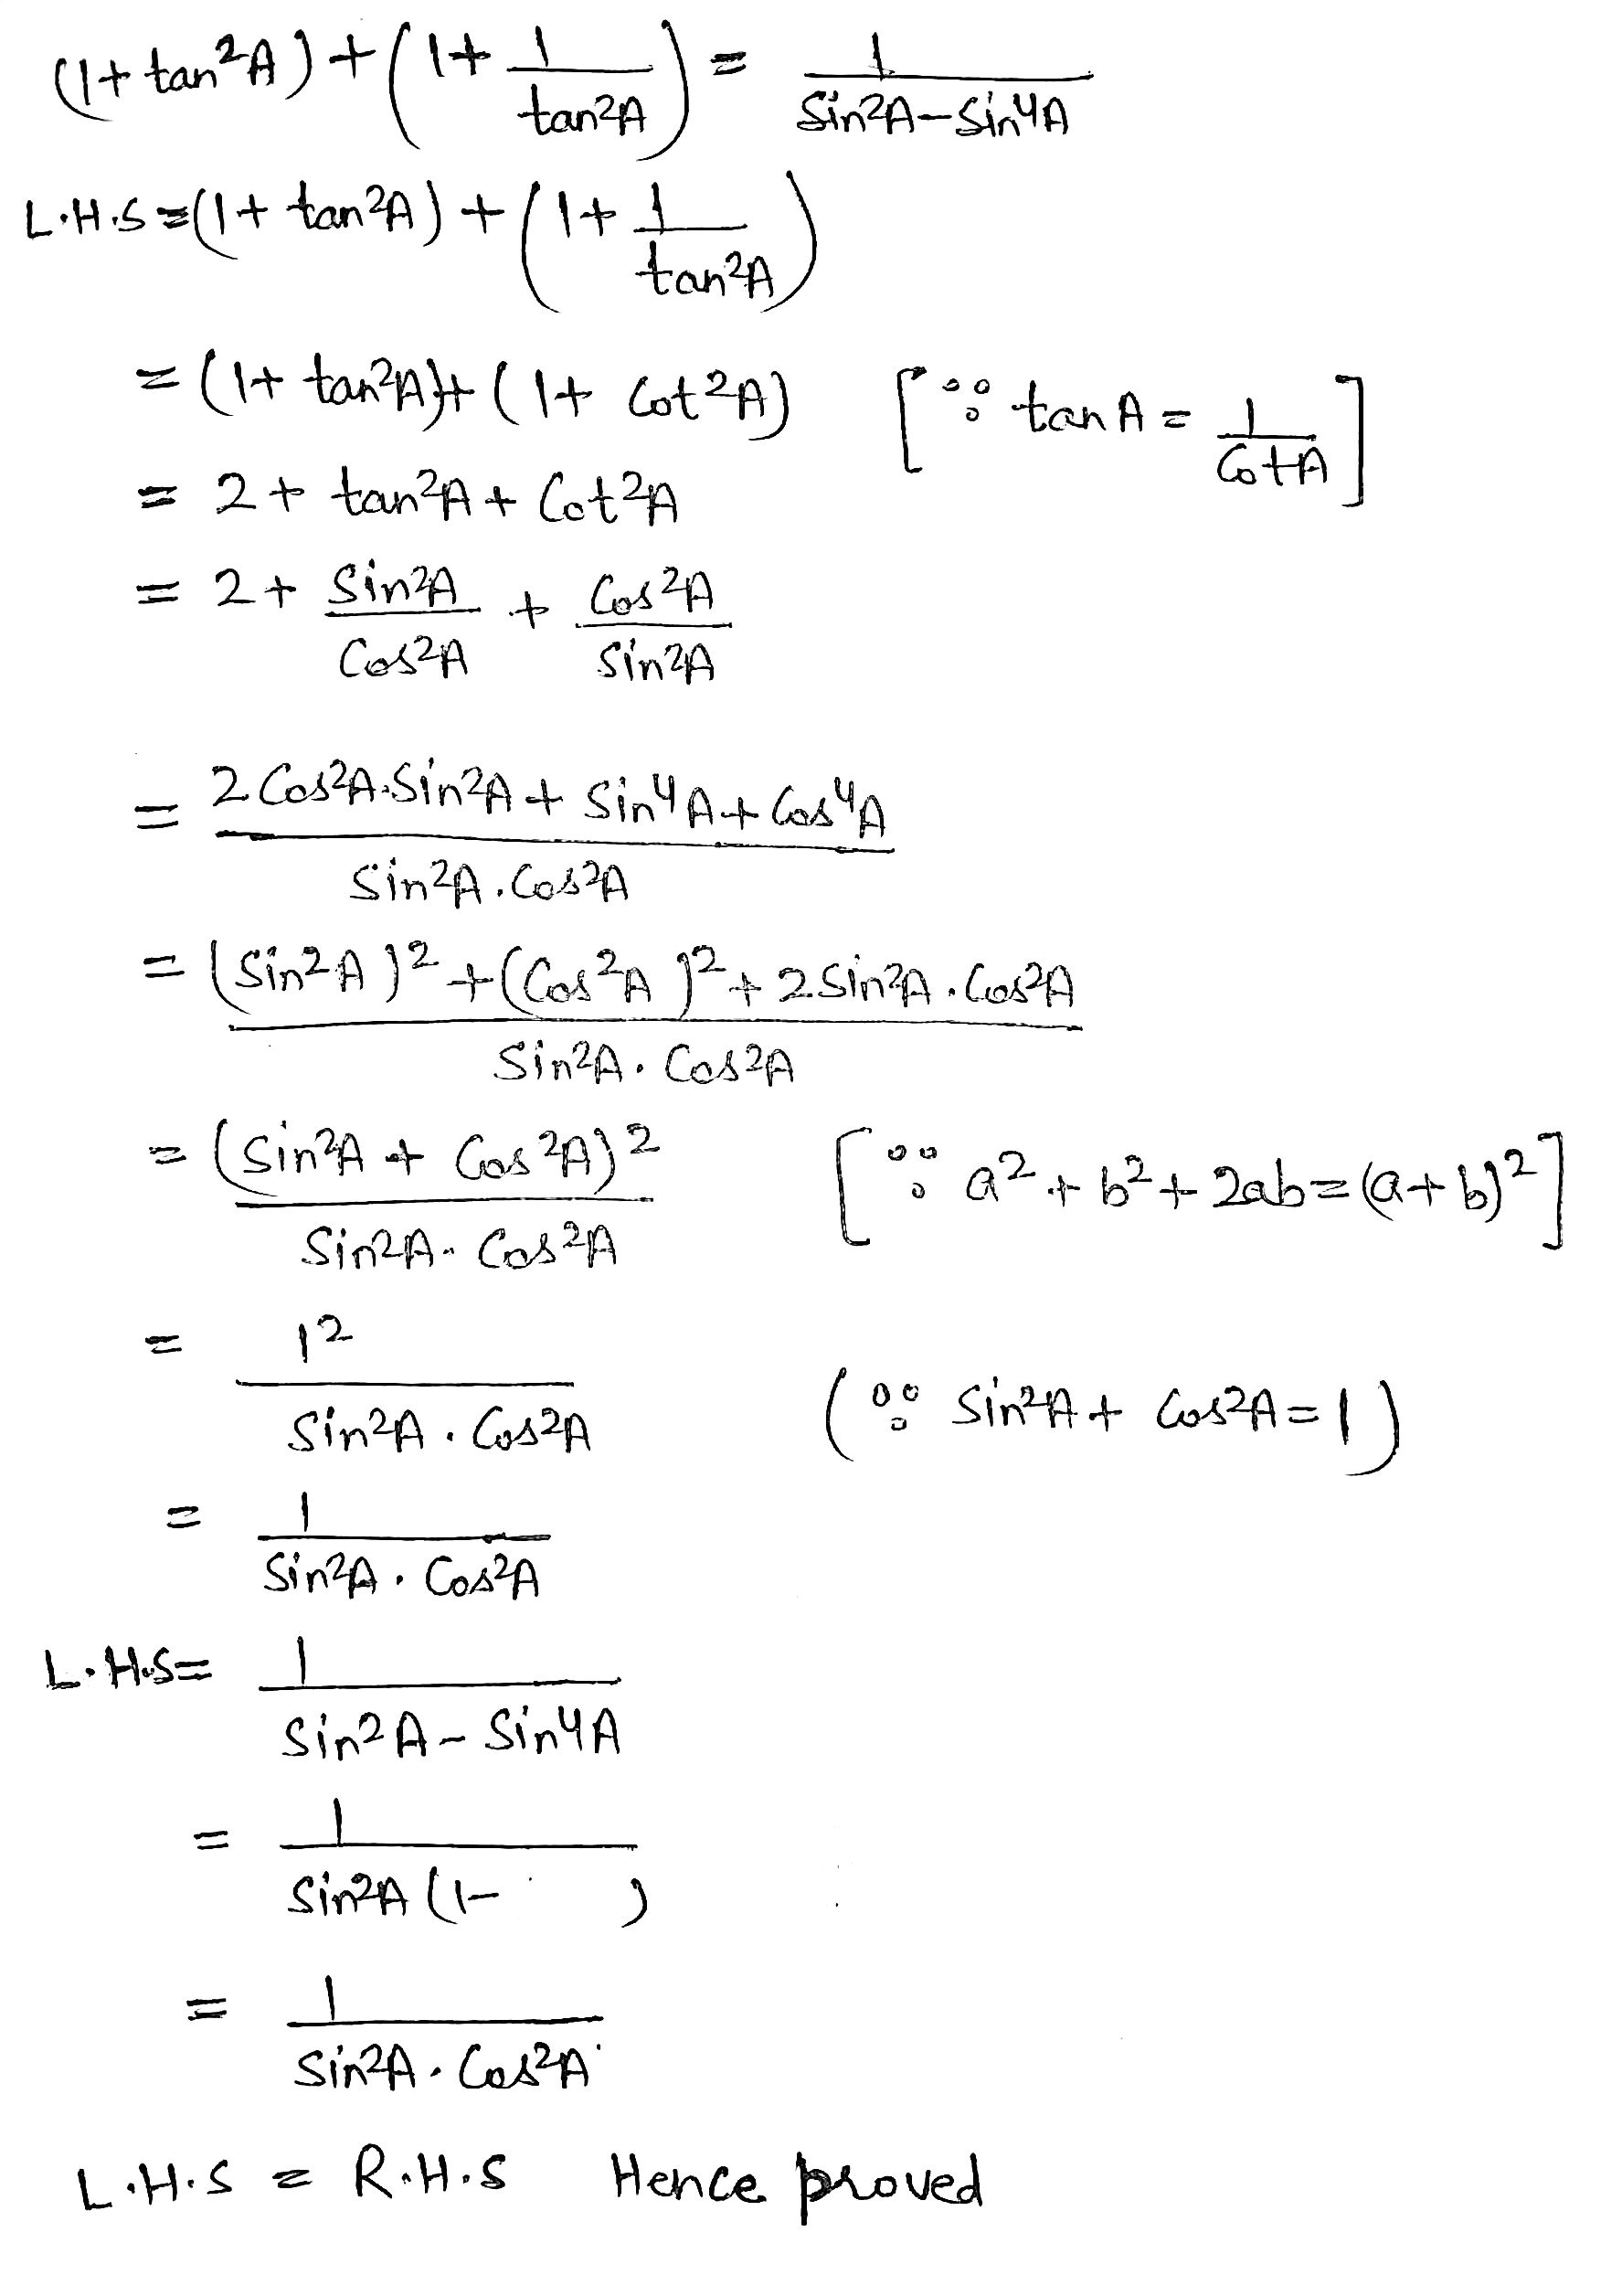 (1+ tan²A) + (1+ 1/tan²A) = 1/Sin²A-Sin⁴A
L.H.S = (1+ tan²A) + (1+ 1/tan²A)
= (1+ tan²A)+ (1+ Cot²A) [∵ tan A = 1/CotA]
= 2+ tan²A + Cot²A
= 2+ Sin²A/Cos²A + Cos²A/Sin²A
= 2 Cos²A.Sin²A + Sin⁴A + Cos⁴A/Sin²A.Cos²A
= (Sin²A)² + (Cos²A)² + 2 Sin²A.Cos²A/Sin²A.Cos²A
= (Sin²A + Cos²A)²/Sin²A.Cos²A [∵ a² + b² + 2ab = (a+b)²]
= 1²/Sin²A.Cos²A (∵ Sin²A + Cos²A = 1)
= 1/Sin²A.Cos²A
L.H.S = 1/Sin²A - Sin⁴A
= 1/Sin²A (1- )
= 1/Sin²A.Cos²A
L.H.S = R.H.S Hence proved